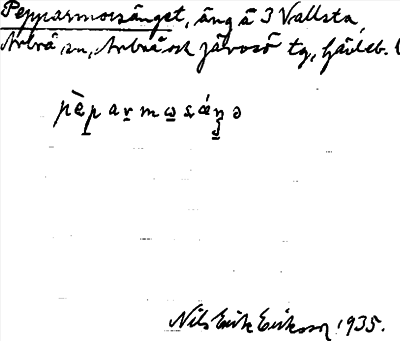 Pepparmorsänget, äng å 3 Vallsta,
Arbrå sn, Arbrå och Järvsö tg, Gävleb. l
pèparmωsáŋə
Nils Erik Eriksson 1935.